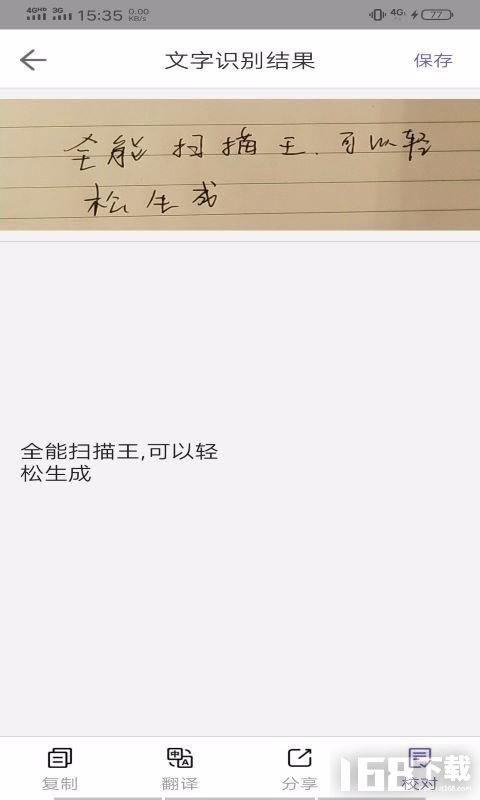 4GHD 3G 15:35 0.00 KB/s 4G 77
文字识别结果 保存
全能扫描王.可以轻
松生成
全能扫描王,可以轻
松生成
复制 翻译 分享 校对
168下载